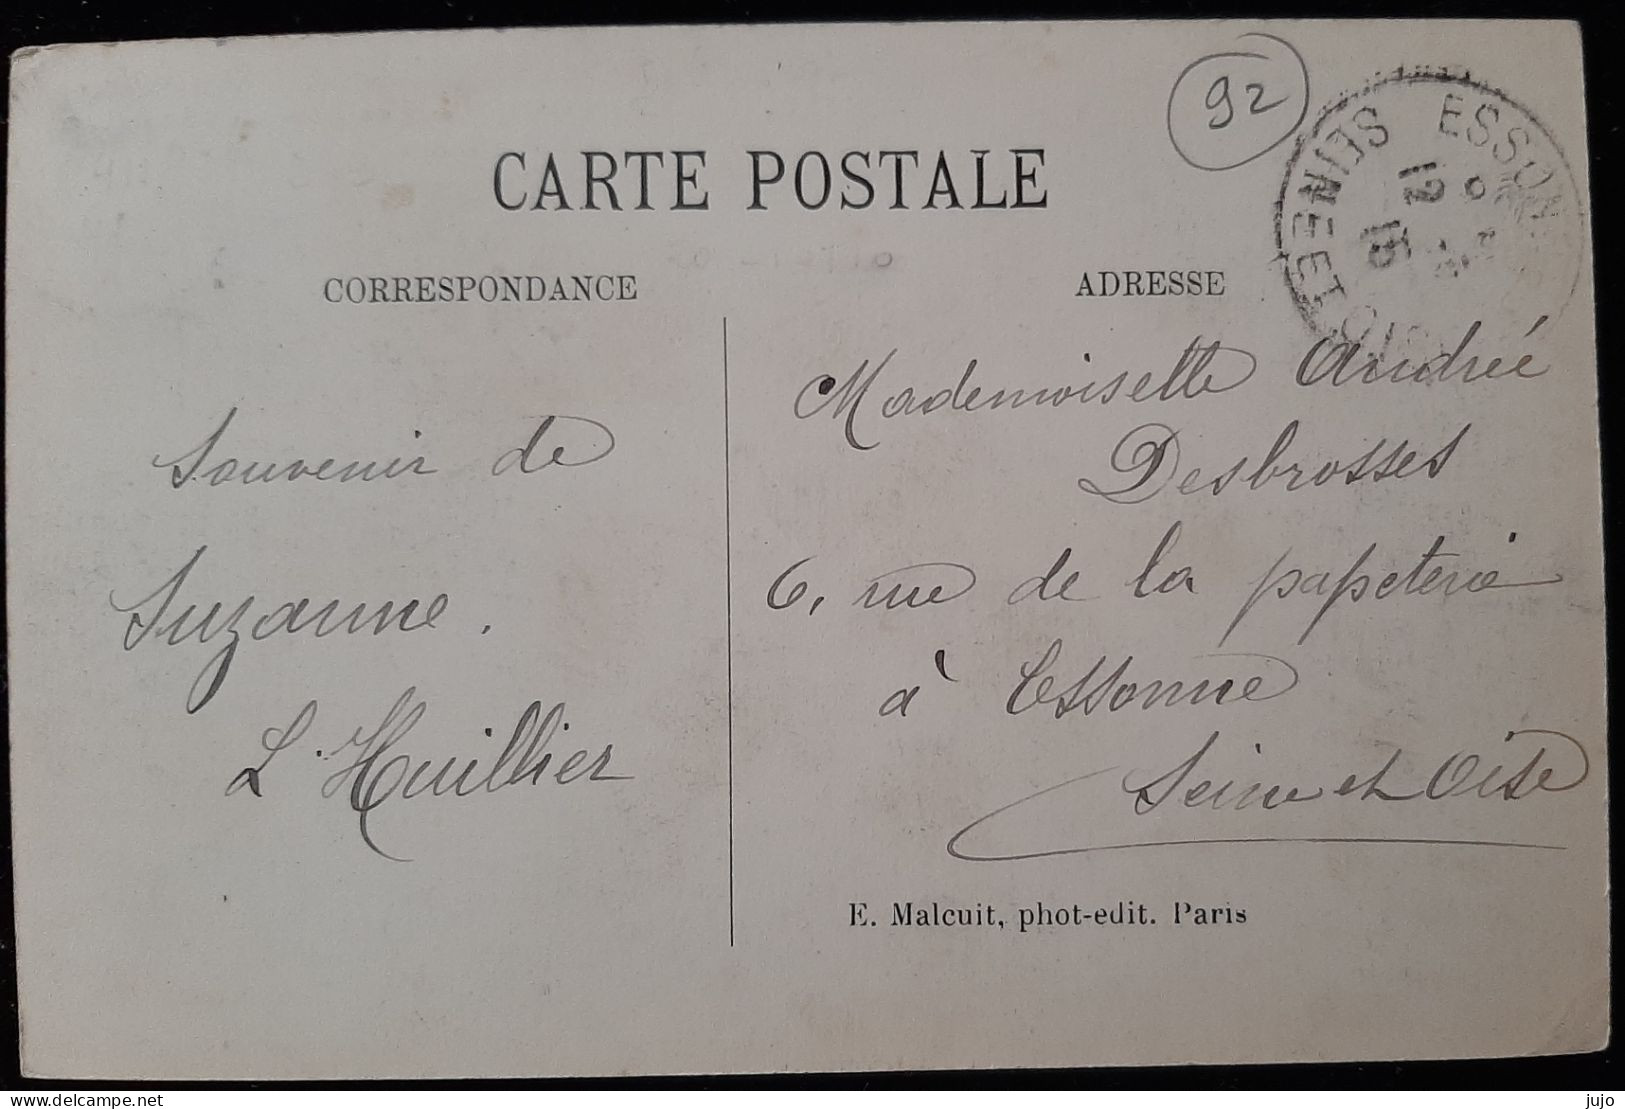 92
CARTE POSTALE
SEINE ET OISE
12
15
CORRESPONDANCE
ADRESSE
Souvenir de
Suzanne.
L'Huillier
Mademoiselle Andrée
Desbrosses
6, rue de la papeterie
à Essonne
Seine et Oise
E. Malcuit, phot-edit. Paris
jujo